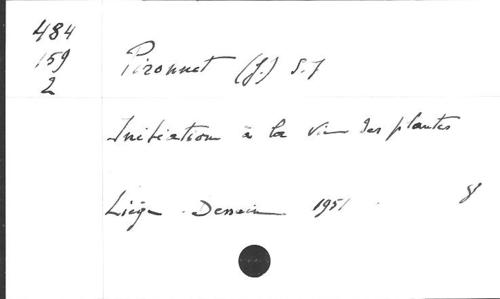 484
159
2
Pironnet (J.) S.J
Initiation à la vie des plantes
Liège. Dessain 1951. 8